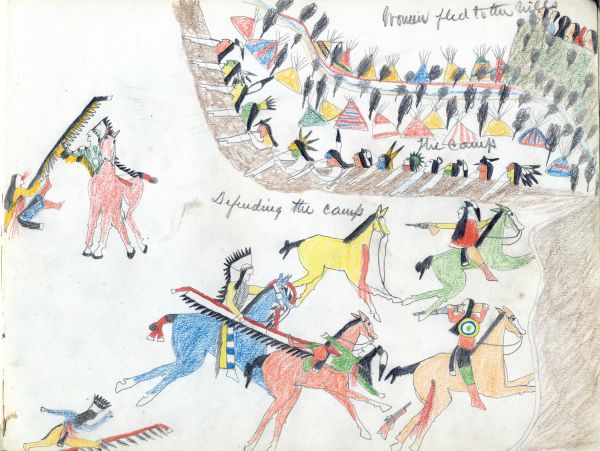 Women fled to the hills
The camp
Defending the camp